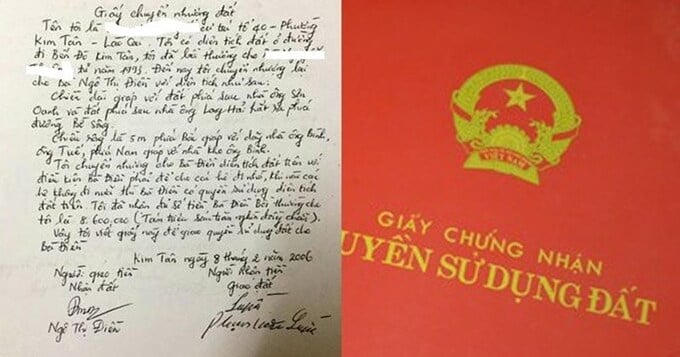 Giấy chuyển nhượng đất
Tên tôi là cư tại tổ 40 - Phường
Kim Tân - Lào Cai. Tôi có diện tích đất ở đường
đi Bến Đò Kim Tân, tôi đã bồi thường cho
từ năm 1993. Đến nay tôi chuyển nhượng lại
cho bà Ngô Thị Điền với diện tích như sau:
Chiều dài giáp với đất phía sau nhà ông Sơn
Oanh và đất phía sau nhà ông Long Hải hất ra phía
đường Bờ sông.
Chiều rộng là 5m phía Bắc giáp với dãy nhà ông Bình,
ông Tuế, phía Nam giáp với nhà kho ông Bình.
Tôi chuyển nhượng cho Bà Điền diện tích đất trên với
điều kiện Bà Điền phải để cho cai hè đi nhờ, khi nào cai
hè không đi nữa thì Bà Điền có quyền sử dụng diện tích
đất trên. Tôi đã nhận đủ số tiền Bà Điền Bồi thường cho
tôi là 8.600.000 (Tám triệu sáu trăm nghìn đồng chẵn).
Vậy tôi viết giấy này để giao quyền sử dụng đất cho
bà Điền
Kim Tân ngày 8 tháng 2 năm 2006
Người giao tiền Người nhận tiền
Nhận đất Giao đất
Ngô Thị Điền
VIỆT NAM
GIẤY CHỨNG NHẬN
UYỀN SỬ DỤNG ĐẤT